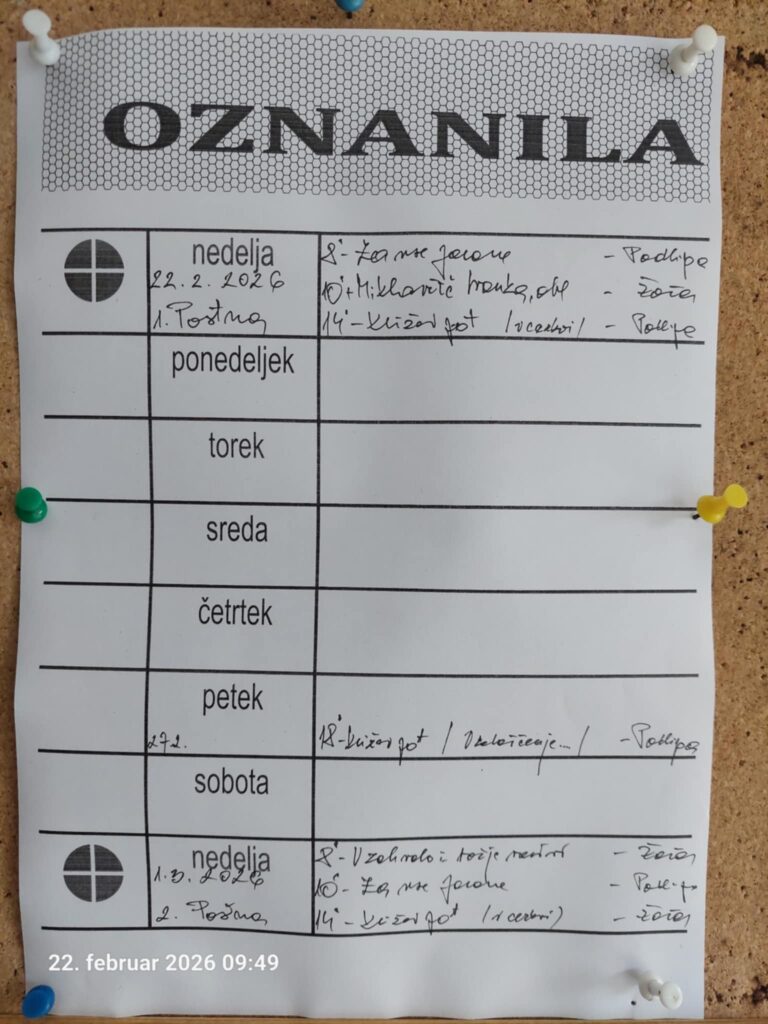 OZNANILA
nedelja
22. 2. 2026
1. Postna
8' - Za vse farane - Podlipa
10' + Miklavčič Ivanka, obl - Žažar
14' - Križev pot /v cerkvi/ - Podlipa
ponedeljek
torek
sreda
četrtek
petek
27 2.
18' - Križev pot / / - Podlipa
sobota
nedelja
1. 3. 2026
2. Postna
8' - V zahvalo i božje - Žažar
10' - Za vse farane - Podlipa
14' - Križev pot /v cerkvi/ - Žažar
22. februar 2026 09:49